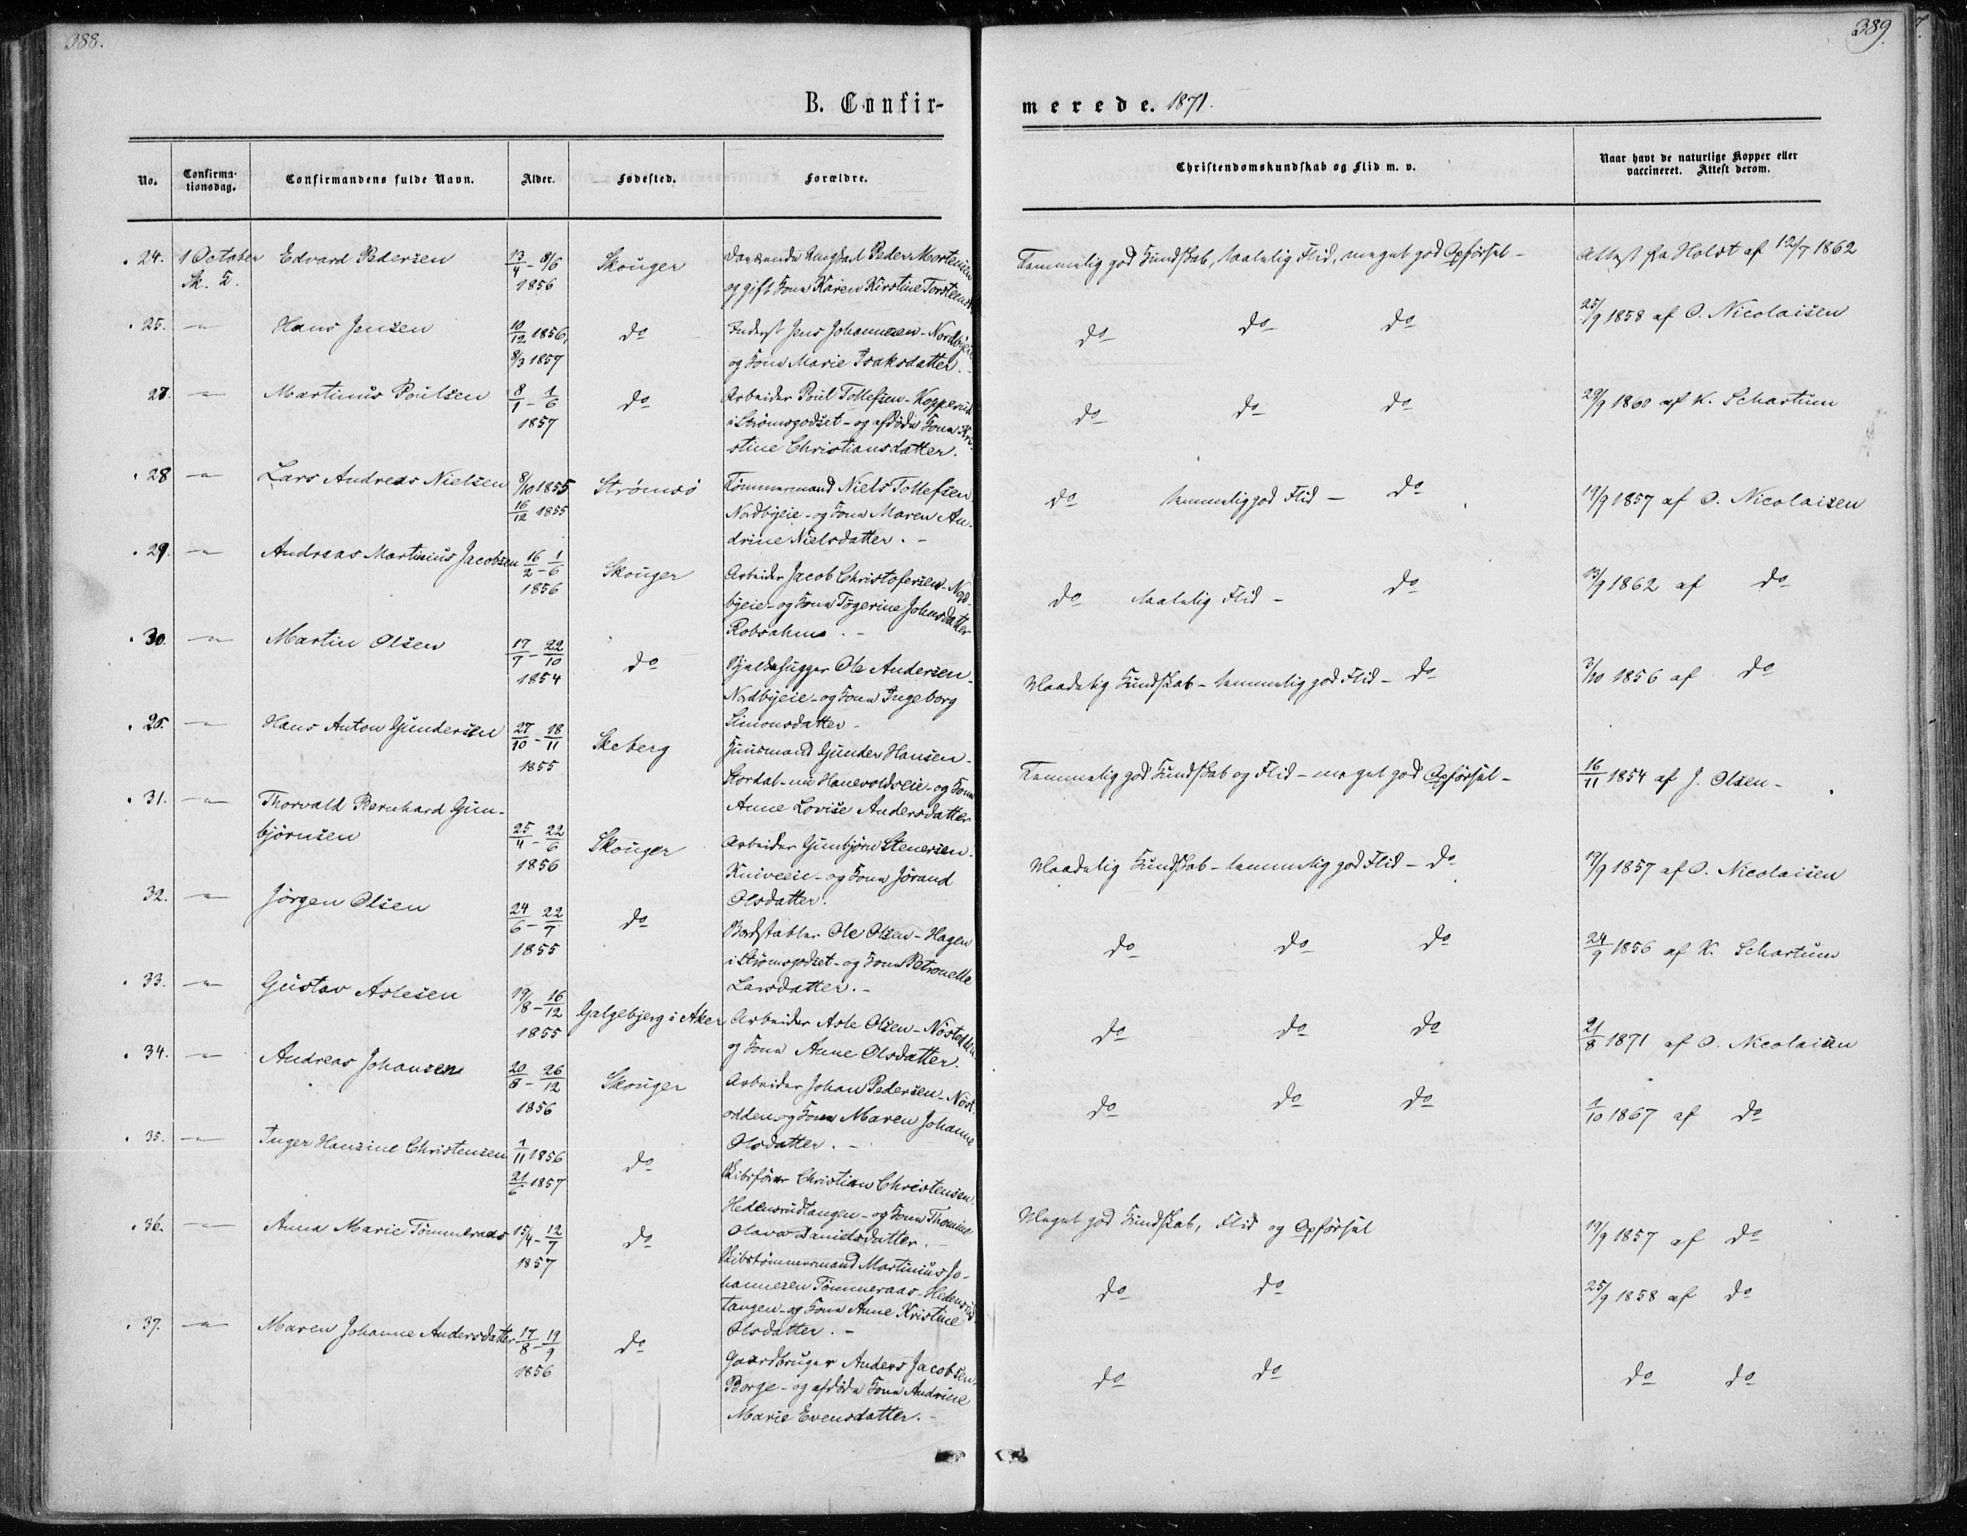 388.
389.
7.
B. Confir-
merede. 1871.
No.
Confirma-
tionsdag.
Confirmandens fulde Navn.
Alder.
Fødested.
Forældre.
Christendomskundskab og Flid m. v.
Naar havt de naturlige Kopper eller
vaccineret. Attest derom.
24. 1 October Edvard Pedersen 13/4 - 8/6 Skouger Peder Mortensen
Sk. K. 1856 og gift Kone Karen Kirstine Torstensd.
Temmelig god Kundskab, Flid, meget god Opførsel - Attest fra Holst af 12/7 1862
25. -"- Hans Jensen 10/12 1856, do Inderst Jens Johannesen - Nordbyeie
8/3 1857 og Kone Marie Isaksdatter.
do do do 25/9 1858 af O. Nicolaisen
27. -"- Martinus Poulsen 8/1 - 1/6 do Arbeider Poul Tollefsen - Kopperud
1857 i Strømsgodset - og afdøde Kone Kri-
stine Christiansdatter.
do do do 29/9 1860 af K. Schartum
28 -"- Lars Andreas Nielsen 8/10 1855 Strømsö Tømmermand Niels Tollefsen
16/12 1855 Nordbyeie - og Kone Maren An-
drine Nielsdatter. -
do temmelig god Flid - do 19/9 1857 af O. Nicolaisen
29. -"- Andreas Martinius Jacobsen 16/2 - 1/6 Skouger Arbeider Jacob Christofersen - Nord-
1856 byeie - og Kone Tøgerine Johnsdatter
Robsahms. -
do Flid - do 13/9 1862 af do
30. -"- Martin Olsen 17/7 - 22/10 do Bjelkehugger Ole Andersen -
1854 Nordbyeie - og Kone Ingeborg
Simonsdatter -
Maadelig Kundskab - temmelig god Flid - do 3/10 1856 af do
25. -"- Hans Anton Gundersen 27/10 - 18/11 Skeberg Huusmand Gunder Hansen -
1855 Stordal - nu Hanevoldseie - og Kone
Anne Lovise Andersdatter
Temmelig god Kundskab og Flid - meget god Opførsel - 16/11 1854 af J. Olsen -
31. -"- Thorvald Bernhard Gun-
bjørnsen 25/4 - 22/6 Skouger Arbeider Gunbjørn Stenersen -
1856 Kniveeie - og Kone Jørand
Olsdatter.
Maadelig Kundskab - temmelig god Flid - do 19/9 1857 af O. Nicolaisen
32. -"- Jörgen Olsen 24/6 - 22/7 do Bordstabler Ole Olsen - Hagen
1855 i Strømsgodset - og Kone Petronelle
Larsdatter. -
do do do 24/9 1856 af K. Schartum
33. -"- Gustav Aslesen 19/8 - 16/12 Galgebjerg i Aker Arbeider Asle Olsen - Nöstodden
1855 og Kone Anne Olsdatter.
do do do 21/8 1871 af O. Nicolaisen
34. -"- Andreas Johansen 20/8 - 26/12 Skouger Arbeider Johan Pedersen - Nöst-
1856 odden - og Kone Maren Johanne
Olsdatter. -
do do do 1/10 1867 af do
35. -"- Inger Hansine Christensen 1/11 1856 do Skibsfører Christian Christensen
21/6 1857 Hedensrudtangen - og Kone Thomine
Olava Danielsdatter. -
Meget god Kundskab, Flid og Opførsel 19/9 1857 af do
36. -"- Anna Marie Tömmeraas 15/4 - 12/7 do Skibstømmermand Martinius Jo-
1857 hannesen Tömmeraas - Hedensrud-
tangen - og Kone Anne Kristine
Olsdatter. -
do do 25/9 1858 af do
37. -"- Maren Johanne Andersdatter 17/8 - 19/9 do Gaardbruger Anders Jacobsen -
1856 Borge - og afdøde Kone Andrine
Marie Evensdatter. -
do do do do